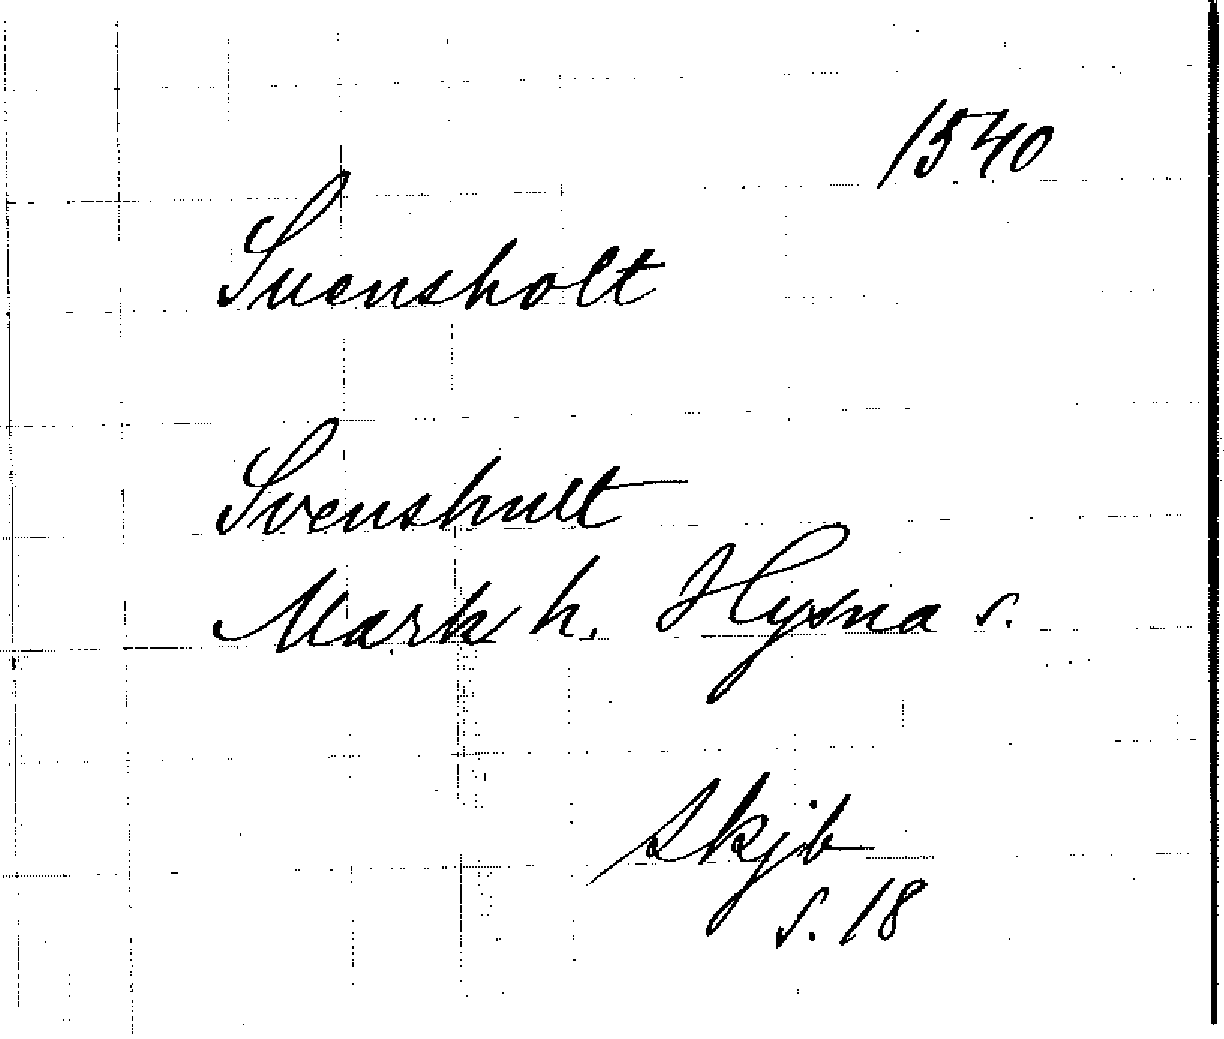 1540
Suensholt
Svenshult
Mark h. Hyssna s.
Skjb
s. 18